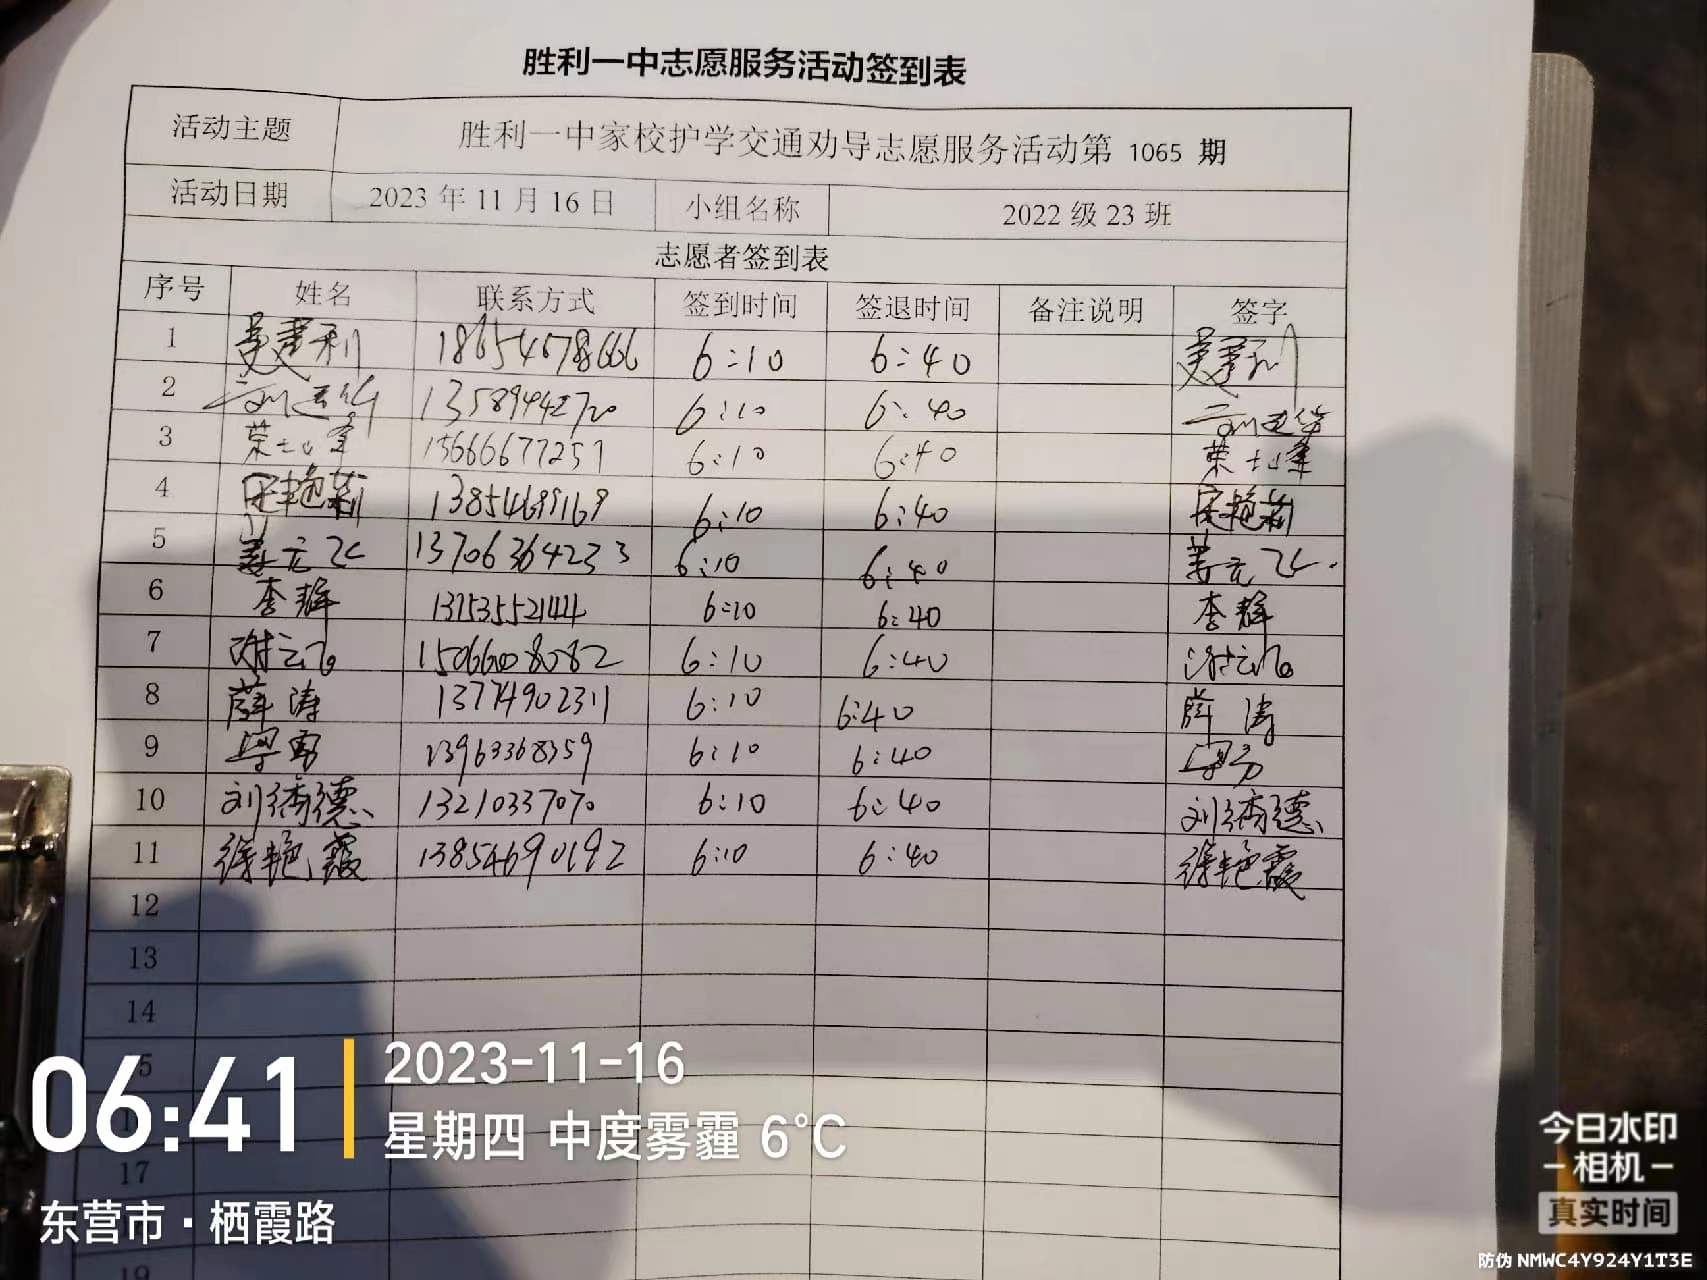 胜利一中志愿服务活动签到表
活动主题 胜利一中家校护学交通劝导志愿服务活动第 1065 期
活动日期 2023 年 11 月 16 日 小组名称 2022 级 23 班
志愿者签到表
序号 姓名 联系方式 签到时间 签退时间 备注说明 签字
1 18654678666 6:10 6:40
2 13589942720 6:10 6:40
3 荣士峰 15666677257 6:10 6:40 荣士峰
4 宋艳莉 13854699169 6:10 6:40 宋艳莉
5 姜元飞 13706364233 6:10 6:40 姜元飞
6 李辉 13753552144 6:10 6:40 李辉
7 谢云飞 15066008082 6:10 6:40 谢云飞
8 薛涛 13774902311 6:10 6:40 薛涛
9 13963368359 6:10 6:40
10 刘德 13210337070 6:10 6:40 刘德
11 徐艳霞 13854690192 6:10 6:40 徐艳霞
12
13
14
5
17
19
06:41
2023-11-16
星期四 中度雾霾 6°C
东营市·栖霞路
今日水印
-相机-
真实时间
防伪 NMWC4Y924Y1T3E